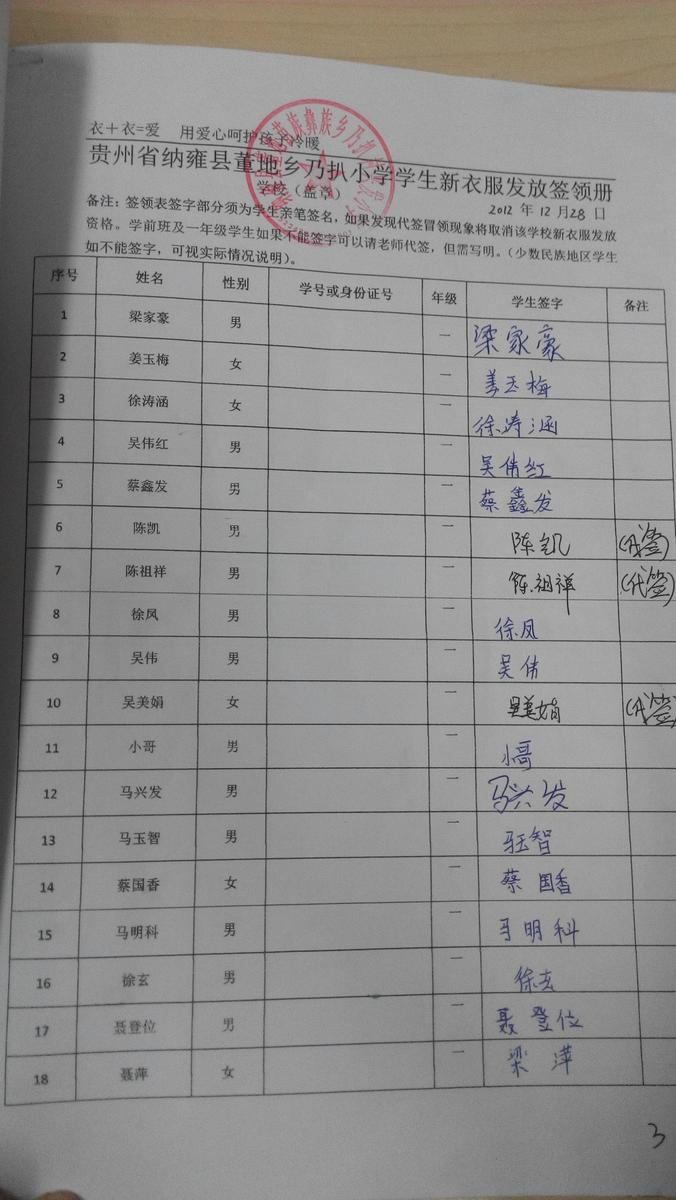 衣＋衣=爱 用爱心呵护孩子冷暖
贵州省纳雍县董地乡乃扒小学学生新衣服发放签领册
学校（盖章） 2012 年 12 月 28 日
备注：签领表签字部分须为学生亲笔签名，如果发现代签冒领现象将取消该学校新衣服发放
资格。学前班及一年级学生如果不能签字可以请老师代签，但需写明。（少数民族地区学生
如不能签字，可视实际情况说明）。
序号 姓名 性别 学号或身份证号 年级 学生签字 备注
1 梁家豪 男 一 梁家豪
2 姜玉梅 女 一 姜玉梅
3 徐涛涵 女 一 徐涛涵
4 吴伟红 男 一 吴伟红
5 蔡鑫发 男 一 蔡鑫发
6 陈凯 男 一 陈凯 (代签)
7 陈祖祥 男 一 陈祖祥 (代签)
8 徐凤 男 一 徐凤
9 吴伟 男 一 吴伟
10 吴美娟 女 一 吴美娟 (代签)
11 小哥 男 一 小哥
12 马兴发 男 一 马兴发
13 马玉智 男 一 马玉智
14 蔡国香 女 一 蔡国香
15 马明科 男 一 马明科
16 徐玄 男 一 徐玄
17 聂登位 男 一 聂登位
18 聂萍 女 一 梁萍
3